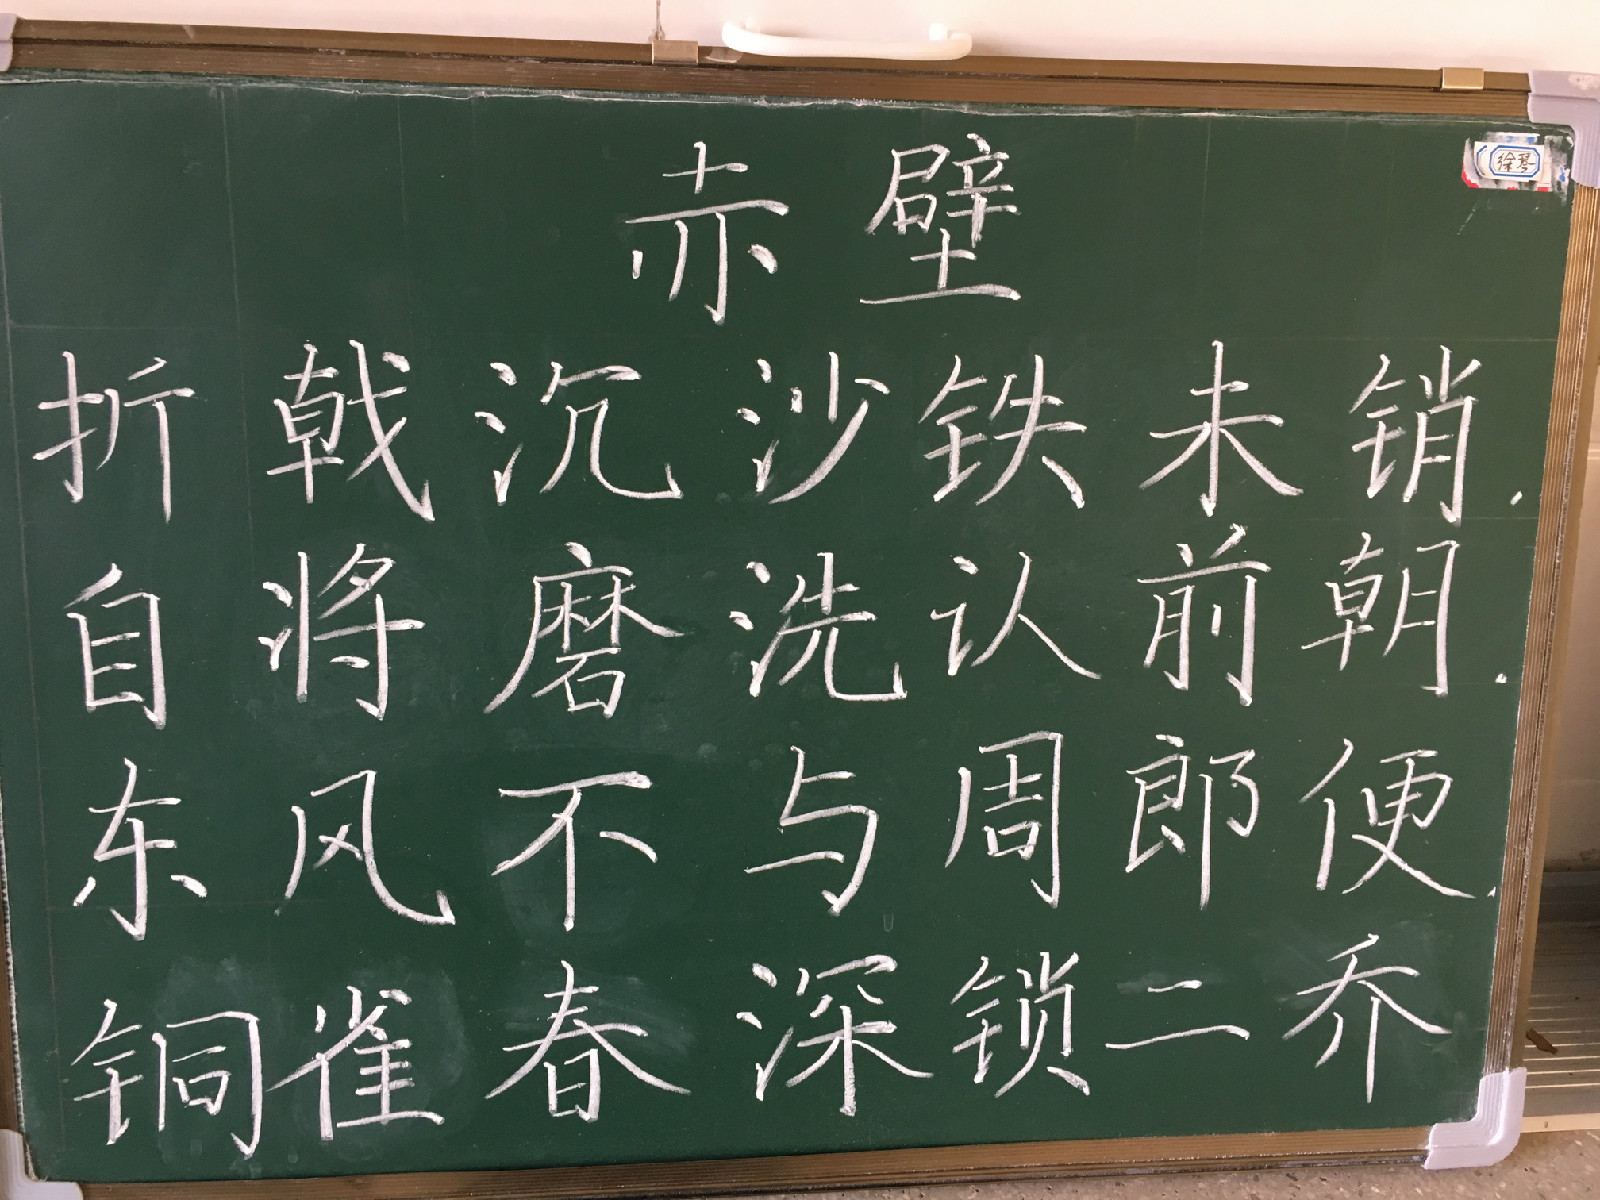 赤壁
徐琴
折戟沉沙铁未销.
自将磨洗认前朝.
东风不与周郎便.
铜雀春深锁二乔